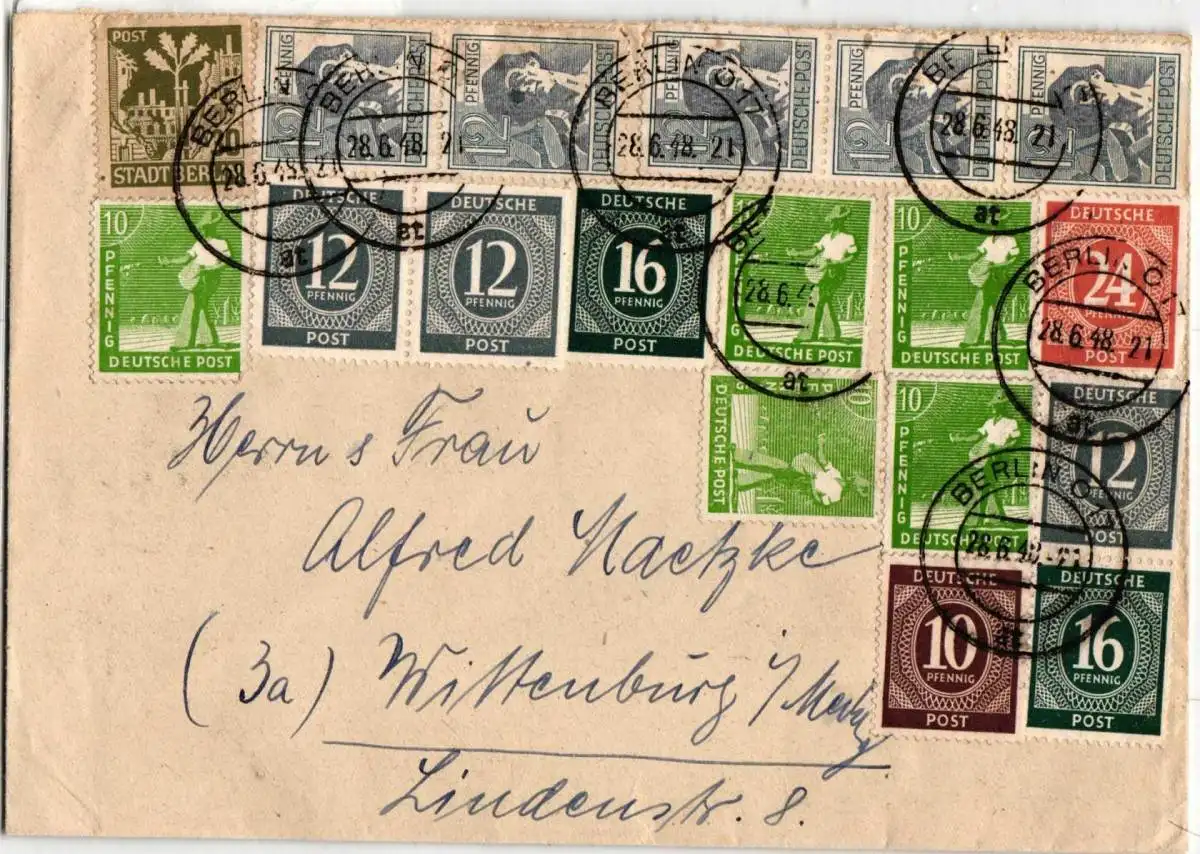 POST
STADT BERLIN
12 PFENNIG DEUTSCHE POST
12 PFENNIG DEUTSCHE POST
12 PFENNIG DEUTSCHE POST
12 PFENNIG DEUTSCHE POST
12 PFENNIG DEUTSCHE POST
BERLIN
28.6.48. 21
at
BERLIN
28.6.48. 21
at
BERLIN O17
28.6.48. 21
BERLIN
28.6.48. 21
at
10 PFENNIG DEUTSCHE POST
DEUTSCHE 12 PFENNIG POST
DEUTSCHE 12 PFENNIG POST
DEUTSCHE 16 PFENNIG POST
10 PFENNIG DEUTSCHE POST
10 PFENNIG DEUTSCHE POST
DEUTSCHE 24 PFENNIG POST
28.6.4
at
BERLIN O17
28.6.48. 21
at
10 PFENNIG DEUTSCHE POST
10 PFENNIG DEUTSCHE POST
DEUTSCHE 12 PFENNIG POST
BERLIN O17
28.6.48. 21
at
DEUTSCHE 10 PFENNIG POST
DEUTSCHE 16 PFENNIG POST
Herrn & Frau
Alfred Maetzke
(3a) Wittenburg i/Meckl
Lindenstr. 8.